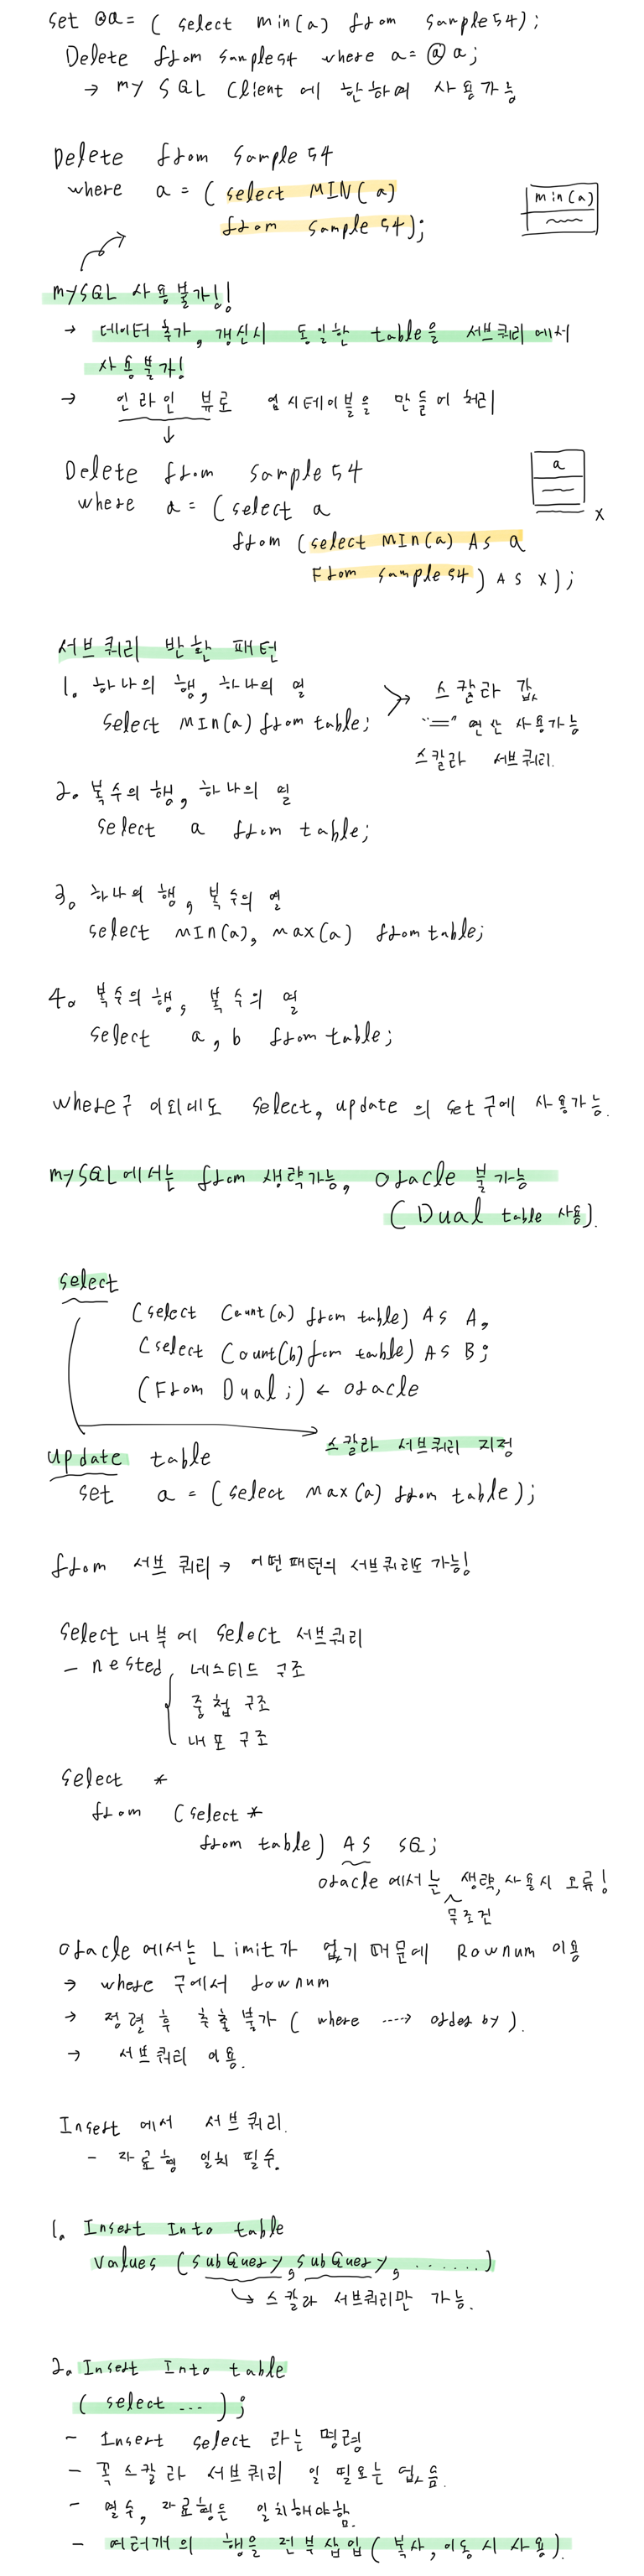 set @a= ( select min(a) from sample54);
Delete from sample54 where a=@a;
→ my SQL Client 에 한하여 사용가능
Delete from sample54
where a = ( select MIN(a)
from sample54);
min(a)
mySQL 사용불가!!
→ 데이터 추가, 갱신시 동일한 table을 서브쿼리에서
사용불가!
→ 인라인 뷰로 임시테이블을 만들어 처리
Delete from sample54
where a = (select a
from (select MIn(a) As a
From sample54) AS x);
a
x
서브쿼리 반환 패턴
1. 하나의 행, 하나의 열
select MIn(a) from table;
스칼라 값
"=" 연산 사용가능
스칼라 서브쿼리.
2. 복수의 행, 하나의 열
select a from table;
3. 하나의 행, 복수의 열
select MIn(a), max(a) from table;
4. 복수의 행, 복수의 열
select a, b from table;
where구 이외에도 select, update 의 set구에 사용가능.
mySQL에서는 from 생략가능, oracle 불가능
(Dual table 사용).
select
(select Count(a) from table) As A,
(select Count(b) from table) AS B;
(From Dual;) ← oracle
스칼라 서브쿼리 지정
update table
set a = (select max(a) from table);
from 서브 쿼리 → 어떤패턴의 서브쿼리도 가능!
select 내부에 select 서브쿼리
- nested 네스티드 구조
중첩 구조
내포 구조
select *
from (select *
from table) AS sQ;
oracle 에서는 생략, 사용시 오류!
무조건
oracle 에서는 Limit가 없기 때문에 Rownum 이용
→ where 구에서 rownum
→ 정렬 후 추출 불가 ( where ----> order by ).
→ 서브쿼리 이용.
Insert 에서 서브쿼리.
- 자료형 일치 필수.
1. Insert Into table
values (subQuery, subQuery, ......)
↳ 스칼라 서브쿼리만 가능.
2. Insert Into table
( select ... );
- Insert select 라는 명령
- 꼭 스칼라 서브쿼리 일 필요는 없음.
- 열수, 자료형은 일치해야함.
- 여러개의 행을 전부삽입 ( 복사, 이동 시 사용).